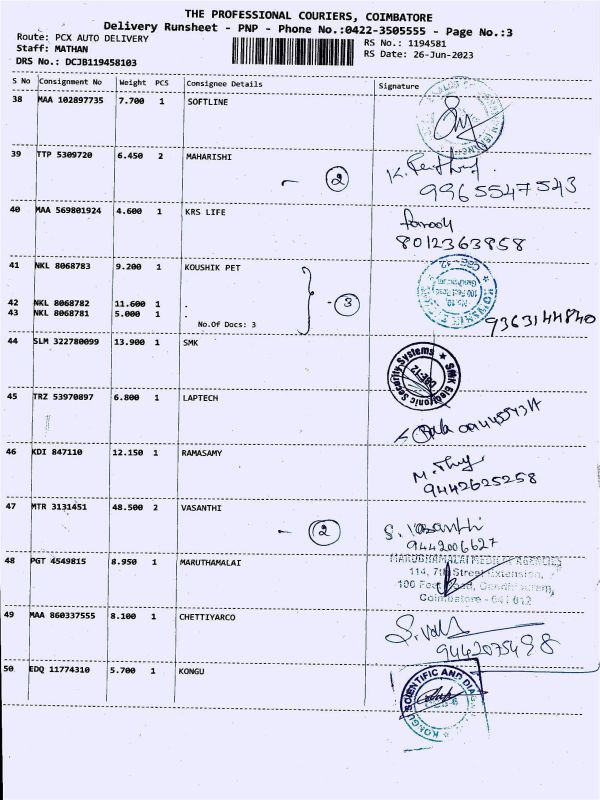 THE PROFESSIONAL COURIERS, COIMBATORE
Delivery Runsheet - PNP - Phone No.:0422-3505555 - Page No.:3
Route: PCX AUTO DELIVERY
RS No.: 1194581
Staff: MATHAN
RS Date: 26-Jun-2023
DRS No.: DCJB119458103
S No Consignment No Weight PCS Consignee Details Signature
38 MAA 102897735 7.700 1 SOFTLINE
39 TTP 5309720 6.450 2 MAHARISHI
- 2
9965547543
40 MAA 569801924 4.600 1 KRS LIFE
8012363858
41 NKL 8068783 9.200 1 KOUSHIK PET
42 NKL 8068782 11.600 1 .
- 3
43 NKL 8068781 5.000 1 .
No.Of Docs: 3
9363144840
44 SLM 322780099 13.900 1 SMK
SMK Electronic Security Systems
CBE-12
45 TRZ 53970897 6.800 1 LAPTECH
46 KDI 847110 12.150 1 RAMASAMY
9442625258
47 MTR 3131451 48.500 2 VASANTHI
- 2
S. Vasanthi
9442006627
48 PGT 4549815 8.950 1 MARUTHAMALAI
114, 7th Street Extension,
100 Feet Road,
Coimbatore - 641 012
49 MAA 860337555 8.100 1 CHETTIYARCO
9442075498
50 EDQ 11774310 5.700 1 KONGU
KONGU SCIENTIFIC AND